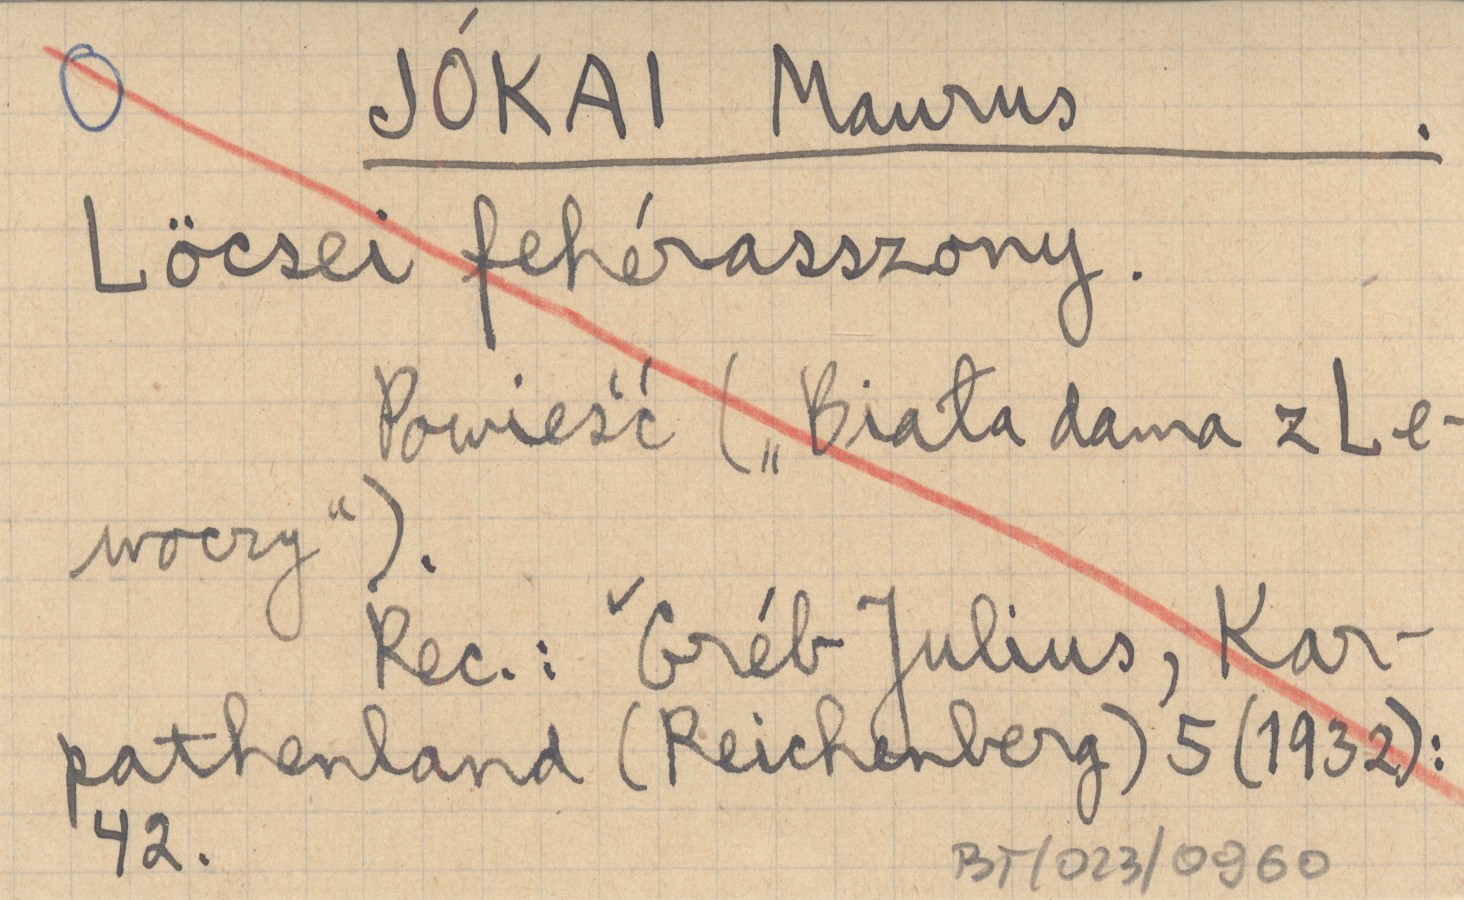 JÓKAI Maurus .
Löcsei fehérasszony.
Powieść („Biała dama z Le-
woczy“).
Rec.: ˇGréb Julius, Kar-
pathenland (Reichenberg) 5 (1932):
42.
BT/023/0960